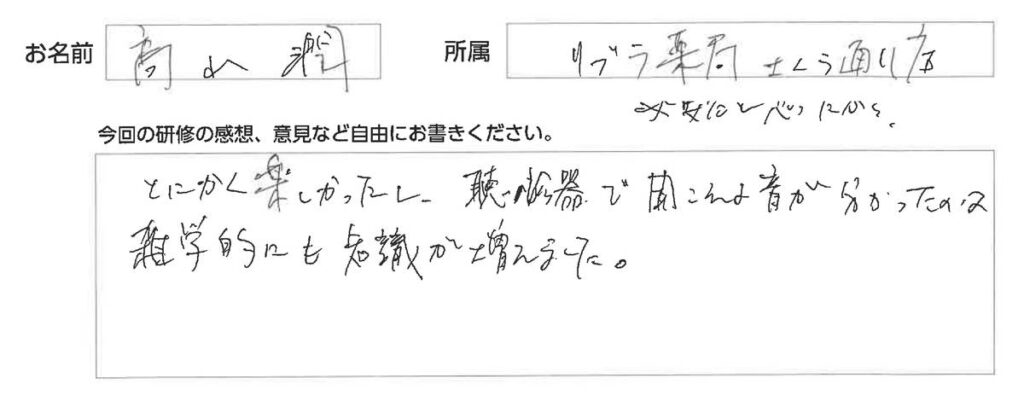 お名前 高山 潤 所属 リブラ薬局 さくら通り店
今回の研修の感想、意見など自由にお書きください。
とにかく楽しかったし、聴診器で聞こえる音が分かったのは
雑学的にも知識が増えました。